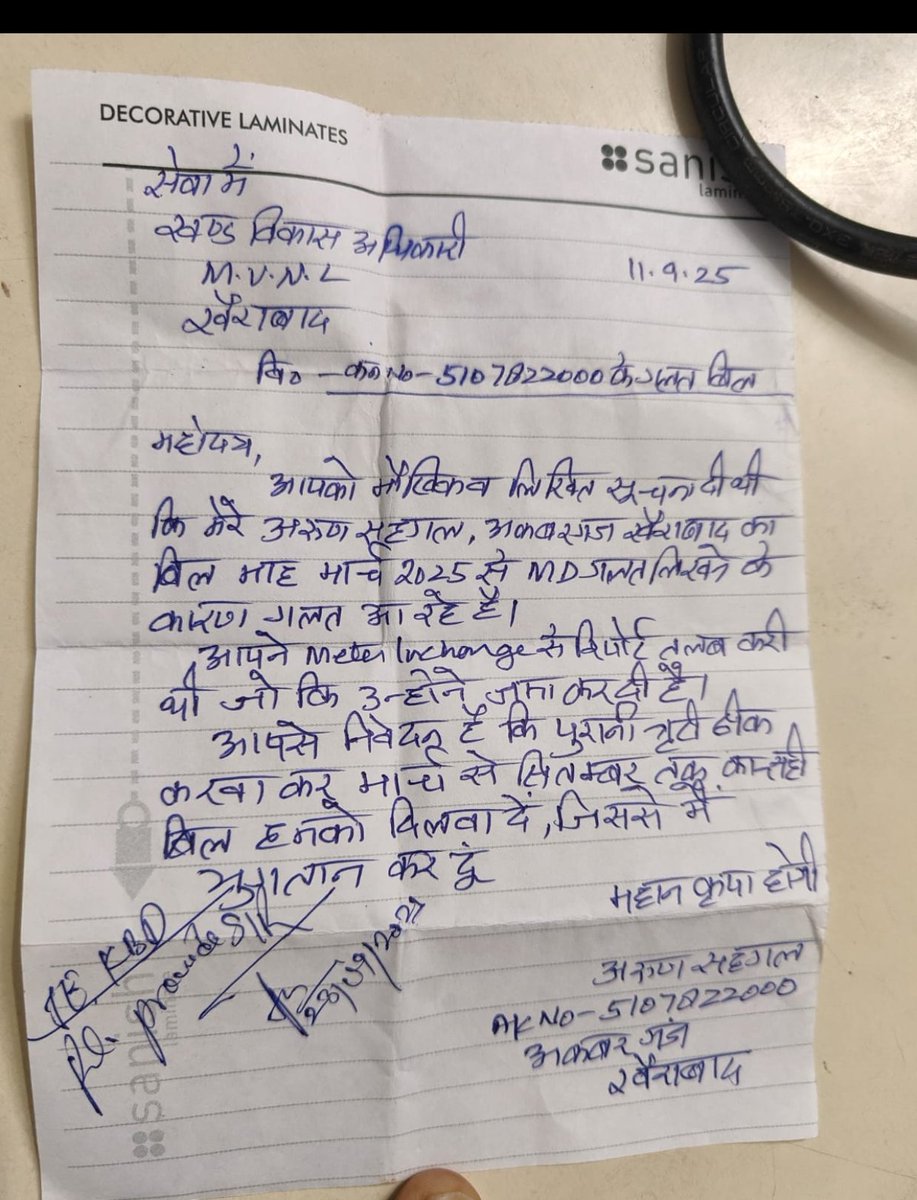 DECORATIVE LAMINATES
sani
lamin
सेवा में
खण्ड विकास अधिकारी
11.9.25
M.V.N.L
खैराबाद
वि० - कन० No - 5107822000 के गलत बिल
महोदय,
आपको मौखिक व लिखित सूचना दी थी
कि मेरे अरुण सहगल, अकबरगंज खैराबाद का
बिल माह मार्च 2025 से MD गलत लिखने के
कारण गलत आ रहे है।
आपने Meter Incharge से रिपोर्ट तलब करी
थी जो कि उन्होने जमा कर दी है।
आपसे निवेदन है कि पुरानी त्रुटी ठीक
करवा कर मार्च से सितम्बर तक का सही
बिल हमको दिलवा दें, जिससे मैं
भुगतान कर दूं
महान कृपा होगी
JE KBD
Pl. provide
अरुण सहगल
A/c No - 5107822000
अकबर गंज
खैराबाद
sanish